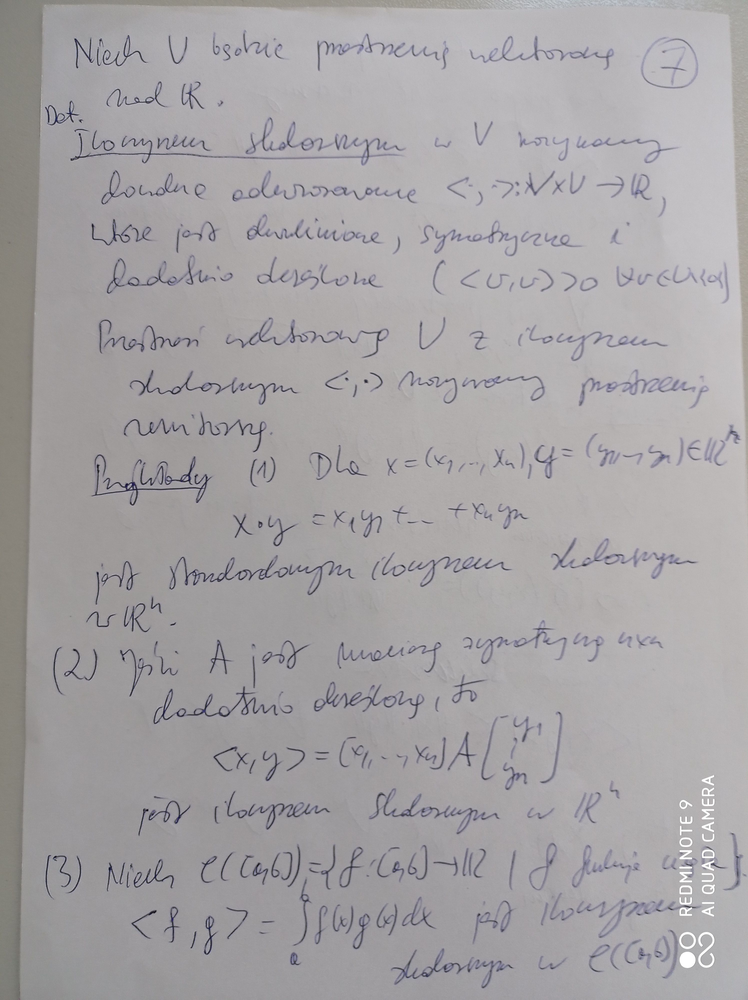 Niech V będzie przestrzenią wektorową
⑦
nad ℝ.
Def.
Iloczynem skalarnym w V nazywamy
dowolne odwzorowanie <·,·>: V×V → ℝ,
które jest dwuliniowe, symetryczne i
dodatnio określone (<v,v> >0 ∀v∈V\{0})
Przestrzeń wektorową V z iloczynem
skalarnym <·,·> nazywamy przestrzenią
unitarną.
Przykłady (1) Dla x=(x₁,..,xₙ), y=(y₁,..,yₙ)∈ℝⁿ
x∘y = x₁y₁+...+xₙyₙ
jest standardowym iloczynem skalarnym
w ℝⁿ.
(2) Jeśli A jest macierzą symetryczną n×n
dodatnio określoną, to
<x,y> = [x₁,..,xₙ] A [y₁ ⋮ yₙ]
jest iloczynem skalarnym w ℝⁿ
(3) Niech C([a,b]) = {f:[a,b]→ℝ | f funkcja ciągła}.
<f,g> = ∫ₐᵇ f(x)g(x)dx jest iloczynem
skalarnym w C([a,b])
REDMI NOTE 9
AI QUAD CAMERA